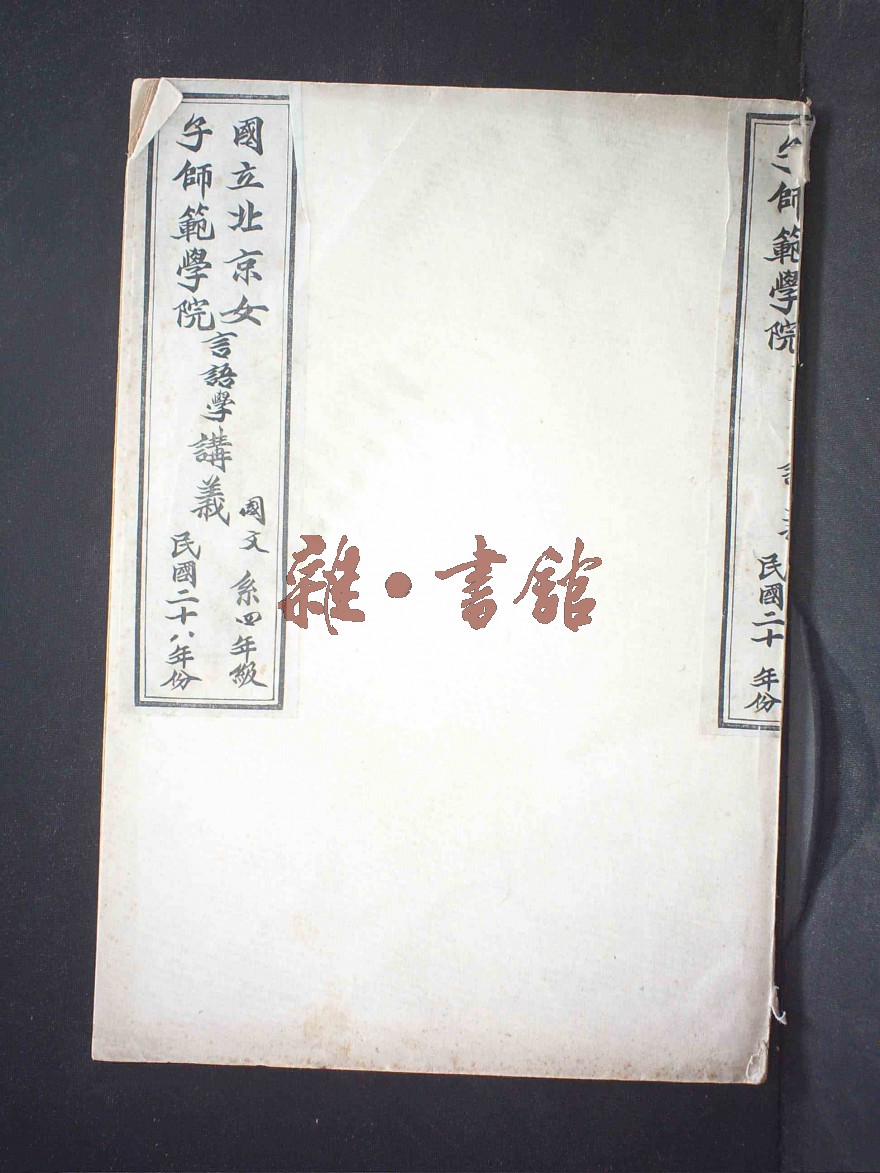 國立北京女
子師範學院
言語學講義
國文系四年級
民國二十八年份
雜·書館
子師範學院
民國二十 年份